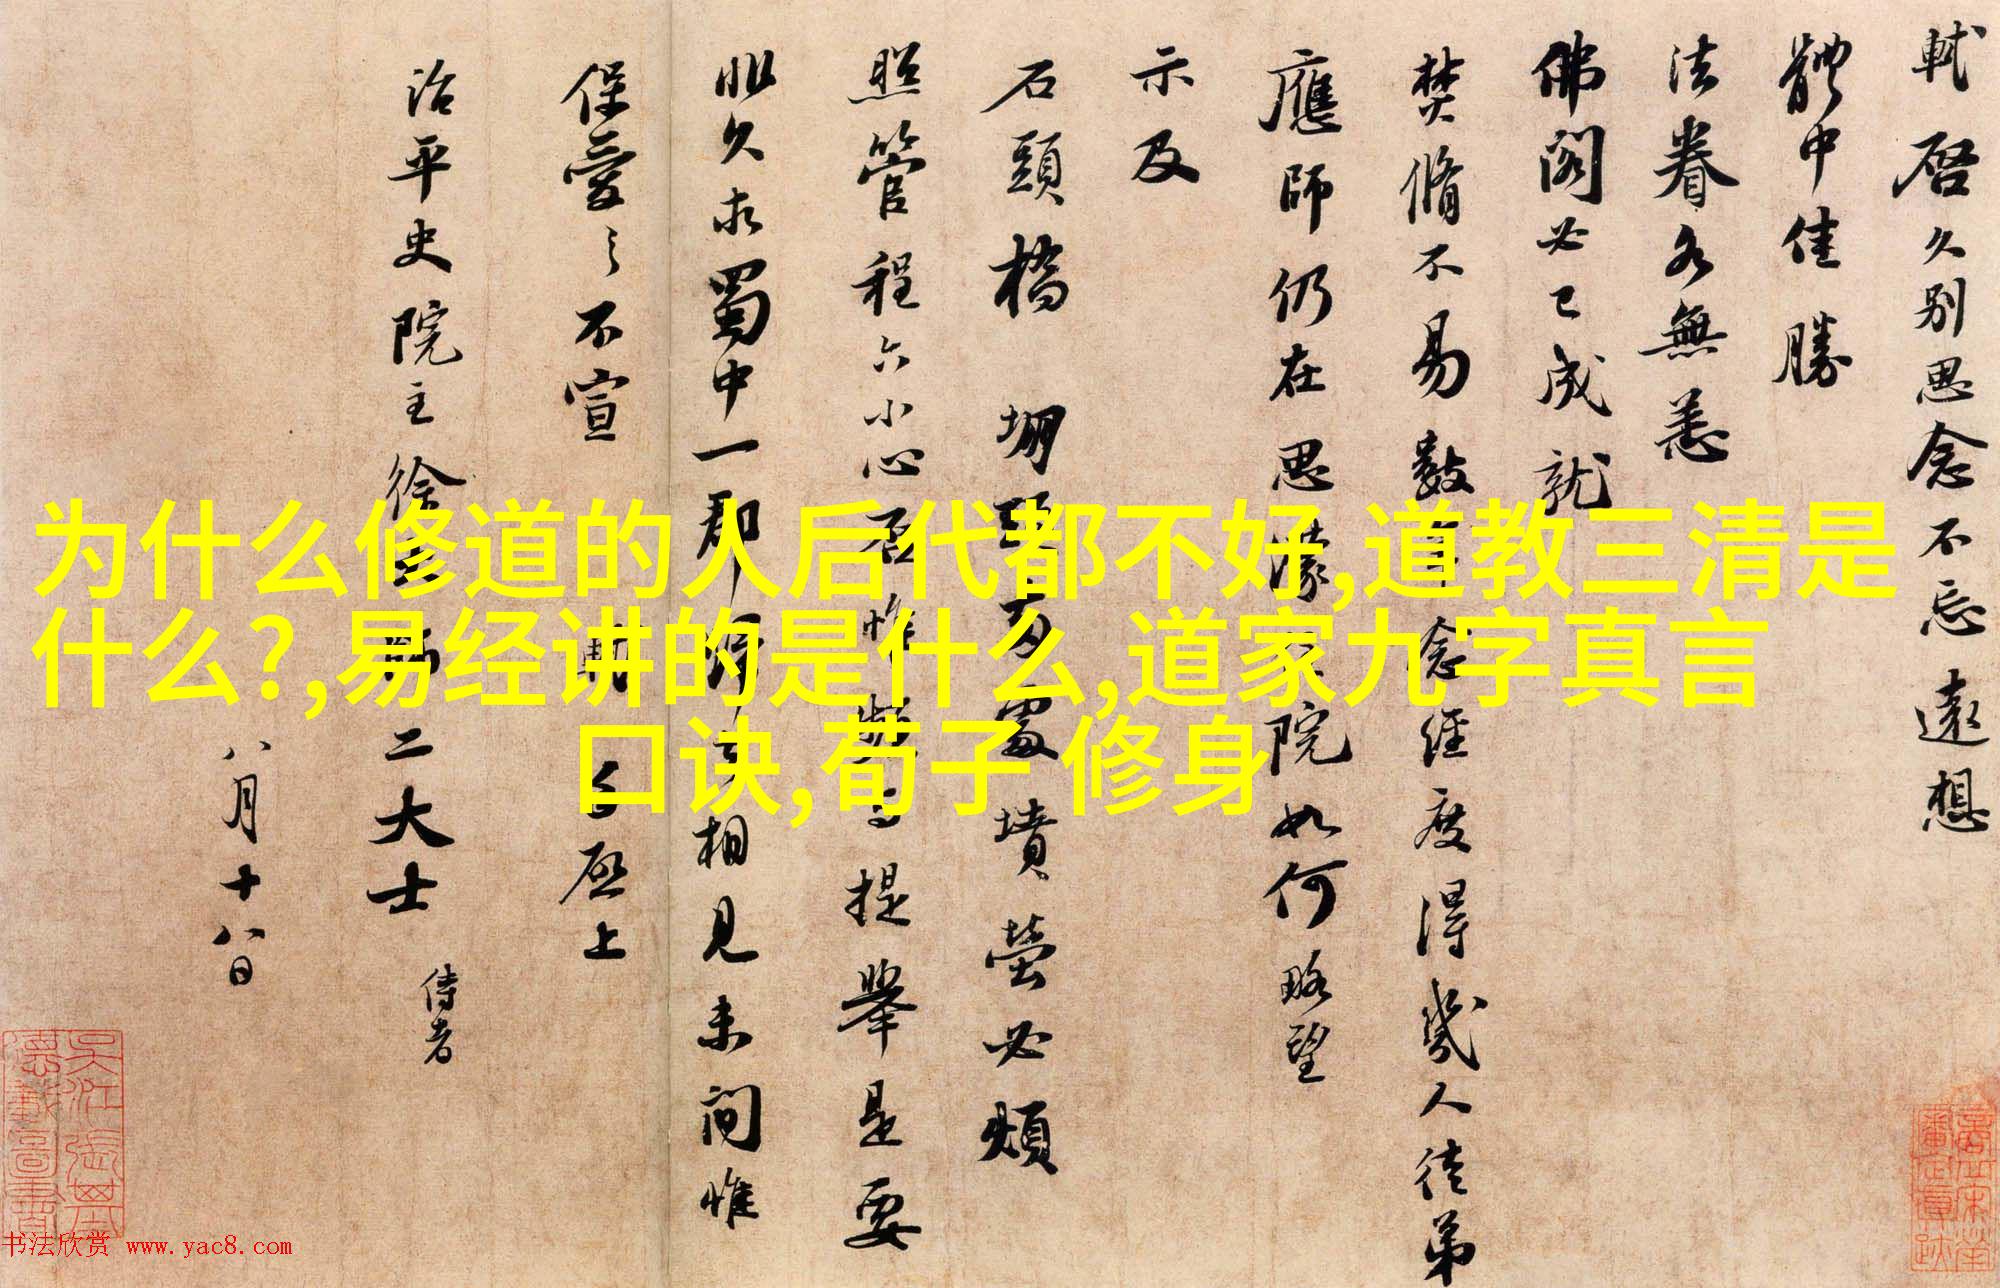 軾啓久别思念不忘遠想
體中佳勝
法眷各無恙
佛閣必已成就
焚脩不易數年念經度得幾人徒弟
應師仍在思濛住院如何略望
示及
石頭橋堋頭兩處墳塋必煩
照管程六小心否惟頻與提舉是要
非久求蜀中一郡歸去相見未間惟
保愛之不宣 軾手啓上
治平史院主徐大師二大士 侍者
八月十八日
为什么修道的人后代都不好,道教三清是
什么?,易经讲的是什么,道家九字真言
口诀,荀子 修身
书法欣赏 www.yac8.com